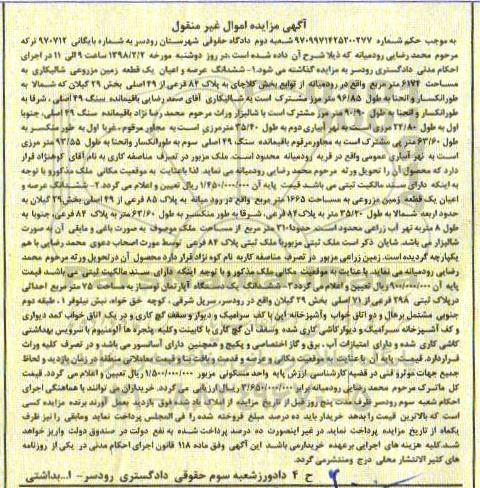 آگهی مزایده اموال غیر منقول
به موجب حکم شماره ۹۷۰۹۹۷۱۴۲۵۲۰۰۲۷۷ شعبه دوم دادگاه حقوقی شهرستان رودسر به شماره بایگانی ۹۷۰۷۱۲ ترکه
مرحوم محمد رضایی رودمیانه که ذیلا شرح آن داده شده است در روز دوشنبه مورخه ۱۳۹۸/۲/۲ ساعت ۹ الی ۱۱ در اجرای
احکام مدنی دادگستری رودسر به مزایده گذاشته می شود. ۱- ششدانگ عرصه و اعیان یک قطعه زمین مزروعی شالیکاری به
مساحت ۶۱۷۴ مترمربع واقع در رودمیانه از توابع بخش کلاچای به پلاک ۸۴ فرعی از ۴۹ اصلی بخش ۲۹ گیلان که شمالا به
طور انکسار و انحنا به طول ۹۶/۸۵ متر مرز مشترک است به شالیکاری آقای صمد رضایی باقیمانده سنگ ۴۹ اصلی، شرقا به
طور انکسار و انحنا به طول مرز مشترک است با شالیزار وراث مرحوم محمد رضا نژاد باقیمانده سنگ ۴۹ اصلی، جنوبا
اول به طول ۲۴/۸۰ مرزی است به نهر آبیاری دوم به طول ۳۵/۴۰ مترمرزی است به مجاور مرقوم، غربا اول به طور منکسر به
طول ۶۳/۶۰ متر پی مشترک است به مجاور مرقوم باقیمانده سنگ ۴۹ اصلی سوم به طور انکسار وانحنا به طول ۹۳/۵۵ متر مرزی
است به نهر آبیاری عمومی واقع در قریه رودمیانه محدود است. ملک مزبور در تصرف مناصفه کاری به نام آقای کوهنژاد قرار
دارد که محصول آن را تحویل ورثه مرحوم محمد رضایی رودمیانه می نماید. لذا با عنایت به موقعیت مکانی ملک مذکور و با توجه
به اینکه دارای سند مالکیت ثبتی می باشد قیمت پایه آن ۱/۴۵۰/۰۰۰/۰۰۰ ریال تعیین و اعلام می گردد. ۲- ششدانگ عرصه و
اعیان یک قطعه زمین مزروعی به مساحت ۱۶۶۵ متر مربع واقع در رودمیانه به پلاک ۸۵ فرعی از ۴۹ اصلی بخش ۲۹ گیلان به
حدود اربعه شمالا به طول ۳۵/۲۰ متر به پلاک ۸۴ فرعی، شرقا به طور منکسر به طول ۶۳/۶۰ متر به پلاک ۸۴ فرعی، جنوبا به
طول ۸ متر به نهر آب زراعی محدود است. حدودا ۳۱۰ متر مربع از مساحت ملک موصوف به صورت باغی و مابقی آن به صورت
شالیزار می باشد. شایان ذکر است ملک ثبتی مزبور با ملک ثبتی پلاک ۸۴ فرعی توسط مورث اصحاب دعوی محمد رضایی با هم
یکپارچه گردیده است. زمین زراعی مزبور در تصرف مناصفه کار به نام کوه نژاد قرار دارد محصول آن در تحویل ورثه مرحوم محمد
رضایی رودمیانه می نماید. با عنایت به موقعیت مکانی ملک مذکور و با توجه به اینکه دارای سند مالکیت ثبتی می باشد. قیمت
پایه آن ۹۰۰/۰۰۰/۰۰۰ ریال تعیین و اعلام می گردد ۳- ششدانگ یک دستگاه آپارتمان نوساز به مساحت ۷۵ متر مربع احداثی
در پلاک ثبتی ۲۹۸ فرعی از ۷۱ اصلی بخش ۲۹ گیلان واقع در رودسر، سرپل شرقی، کوچه حق خواه، نبش نیلوفر ۱، طبقه دوم
جنوبی مشتمل بر هال و دو اتاق خواب و آشپزخانه اپن با کف سرامیک و دیوار و سقف گچ کاری و در یک اتاق خواب کمد دیواری
و کف آشپزخانه سرامیک و دیوار کاشی کاری شده و سقف آن گچ کاری با کابینت و کلیه پنجره ها آلومنیوم با سرویس بهداشتی
کاشی کاری شده و دارای امتیازات آب، برق و گاز اختصاصی و پکیج و همچنین دارای آسانسور می باشد و در تصرف کلیه وراث
قرار دارد. قیمت پایه آن با عنایت به موقعیت مکانی و عرصه و قدمت و بافت بنا و قیمت معاملاتی منطقه در زمان بازدید و لحاظ
جمیع جهات موثر و فنی در قضیه کارشناسی ارزش پایه واحد مسکونی مزبور ۱/۵۰۰/۰۰۰/۰۰۰ ریال تعیین و اعلام می گردد. قیمت
کل ماترک مرحوم محمد رضایی رودمیانه برابر ۳/۶۵۰/۰۰۰/۰۰۰ ریال ارزیابی می گردد. خریداران می توانند با هماهنگی اجرای
احکام شعبه سوم رودسر ظرف مدت پنج روز قبل از تاریخ مزایده از املاک یاد شده فوق بازدید نمایند. برنده مزایده کسی
است که بالاترین قیمت را بدهد خریدار باید ده درصد مبلغ فروخته شده را فی المجلس پرداخت نماید ومابقی را نیز ظرف
یکماه از تاریخ مزایده پرداخت نماید. در غیر اینصورت ده درصد پرداخت شده به نفع دولت در صندوق دولت واریز خواهد
شد. کلیه هزینه های اجرایی بر عهده خریدار می باشد این آگهی وفق ماده ۱۱۸ قانون اجرای احکام مدنی در یکی از روزنامه
های کثیر الانتشار محلی درج ومنتشر می گردد.
ح ۴ دادورز شعبه سوم حقوقی دادگستری رودسر - ا...بداشتی